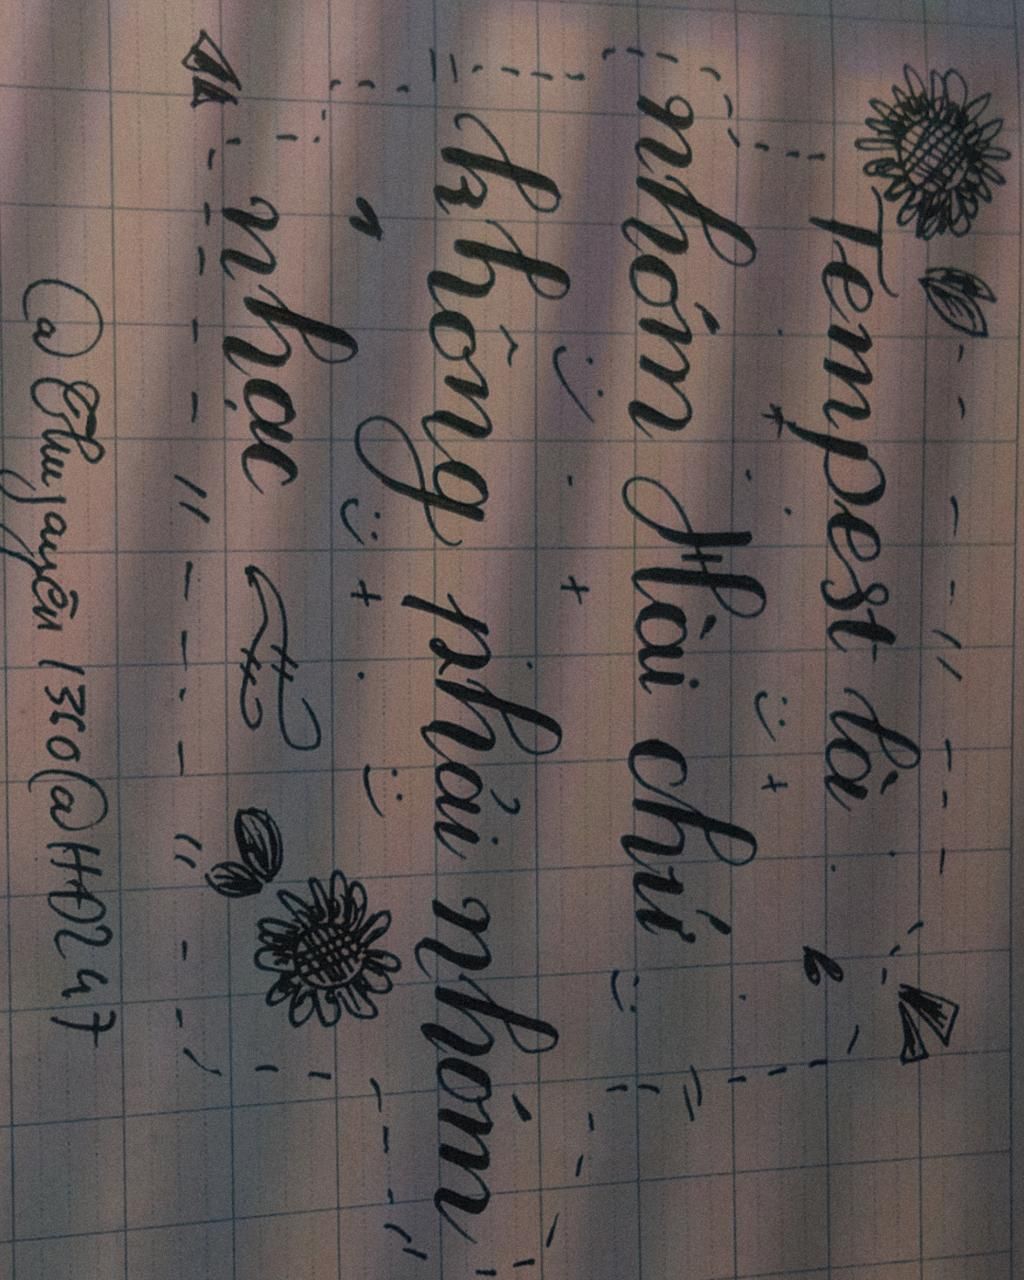 Tempest là
nhóm Hài chí
không phải nhóm
nhạc
@Thuyauyên1350@HĐ247